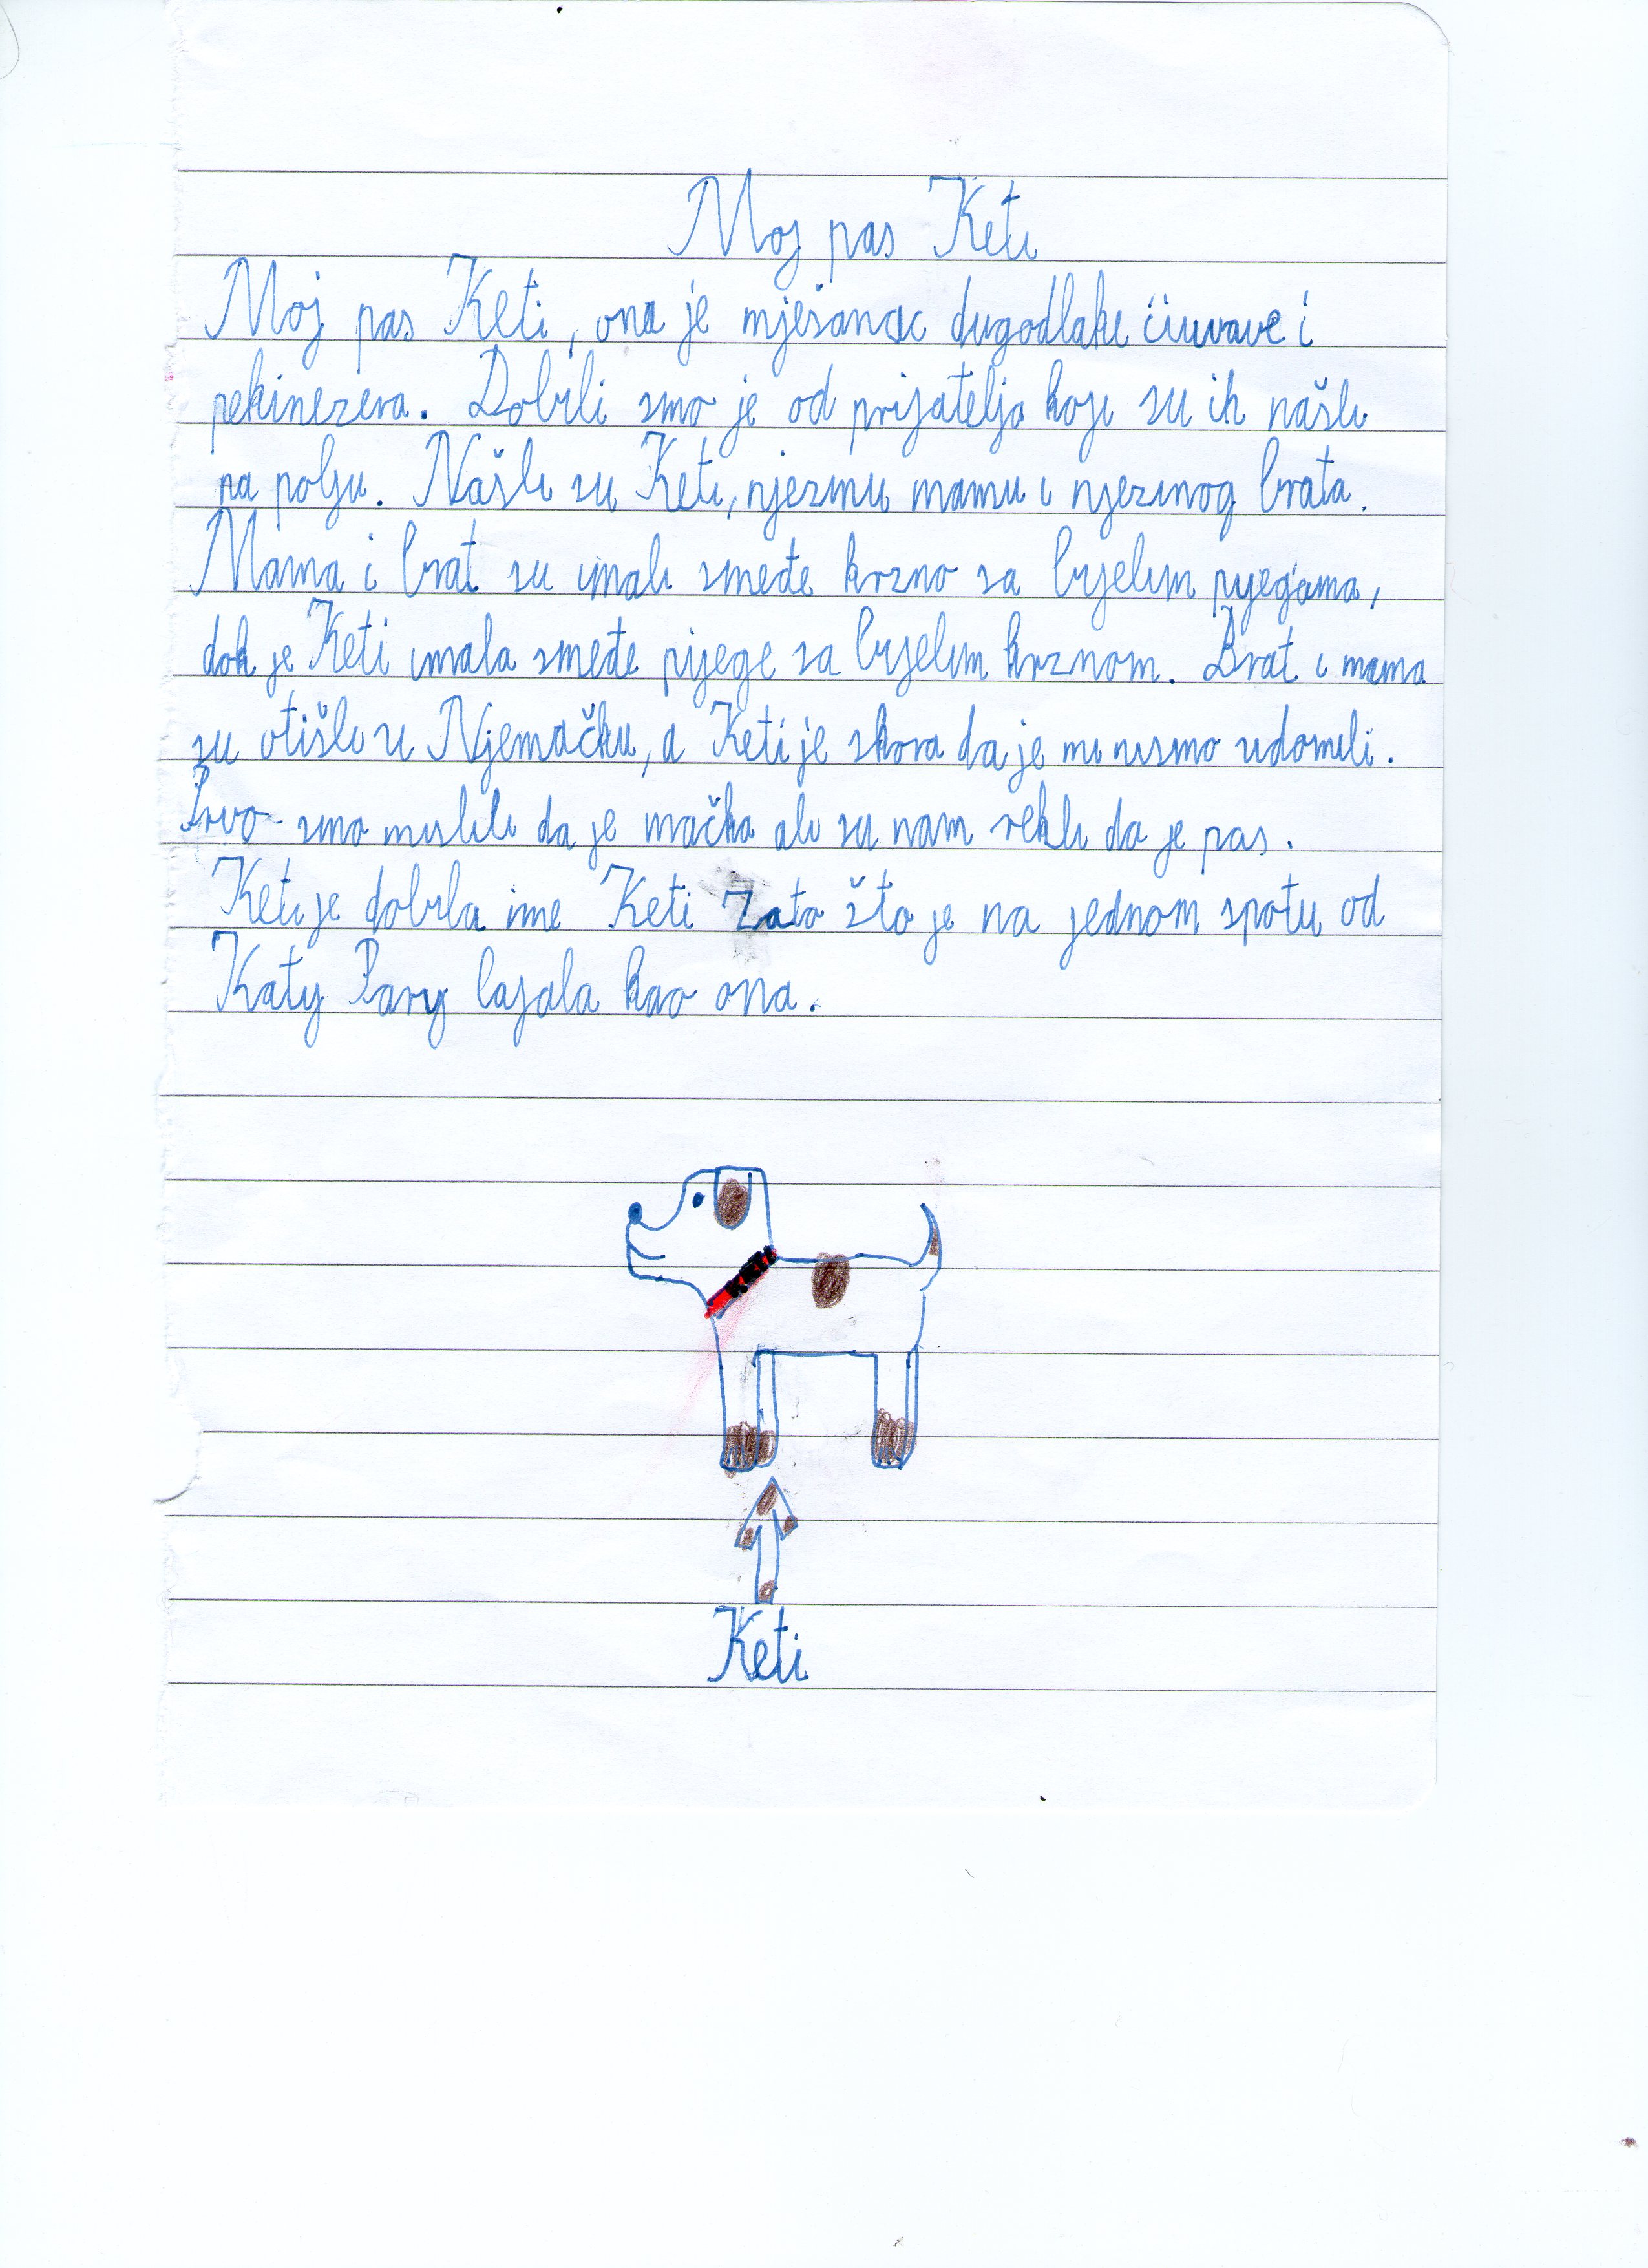 Moj pas Keti
Moj pas Keti, ona je mješanac dugodlake ćiuvave i
pekinezera. Dobili smo je od prijatelja koji su ih našli
na polju. Našli su Keti, njezinu mamu i njezinog brata.
Mama i brat su imali smeđe krzno sa bijelim pjegama,
dok je Keti imala smeđe pijege sa bijelim krznom. Brat i mama
su otišli u Njemačku, a Keti je skora da je mi nismo udomili.
Prvo smo mislili da je mačka ali su nam rekli da je pas.
Keti je dobila ime Keti zato što je na jednom spotu od
Katy Pary lajala kao ona.
Keti